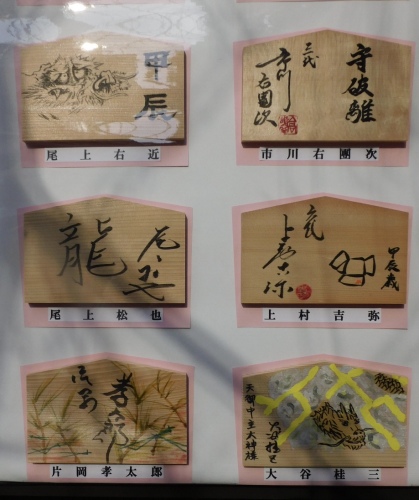 甲辰
尾上右近
守破離
三代
市川右團次
市川右團次
龍
尾上松也
六代
上村吉弥
甲辰歳
上村吉弥
孝太郎
片岡孝太郎
天御中主大神様
大谷桂三